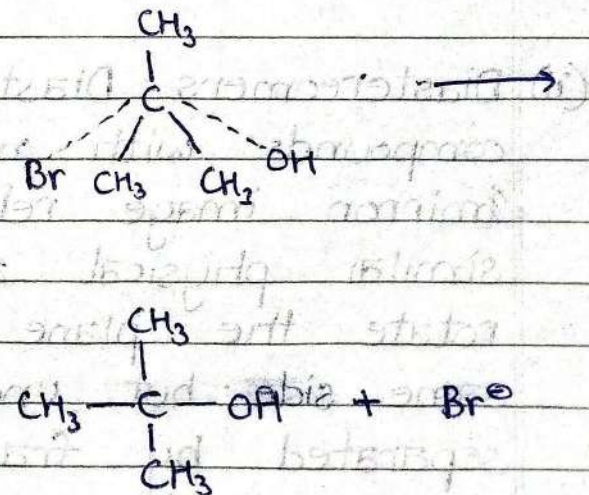 CH₃
C
Br CH₃ CH₃ OH
CH₃
CH₃ — C — OH + Br⊖
CH₃